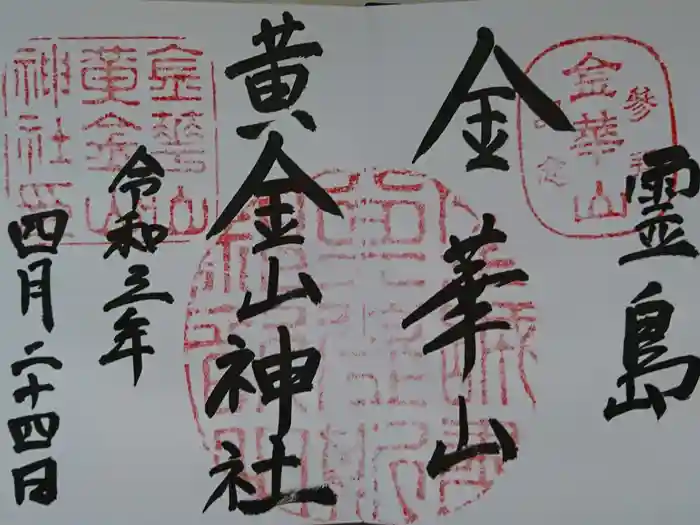 霊島
金華山
黄金山神社
令和三年
四月二十四日
金華山
参拝
記念
金華山
黄金山
神社印